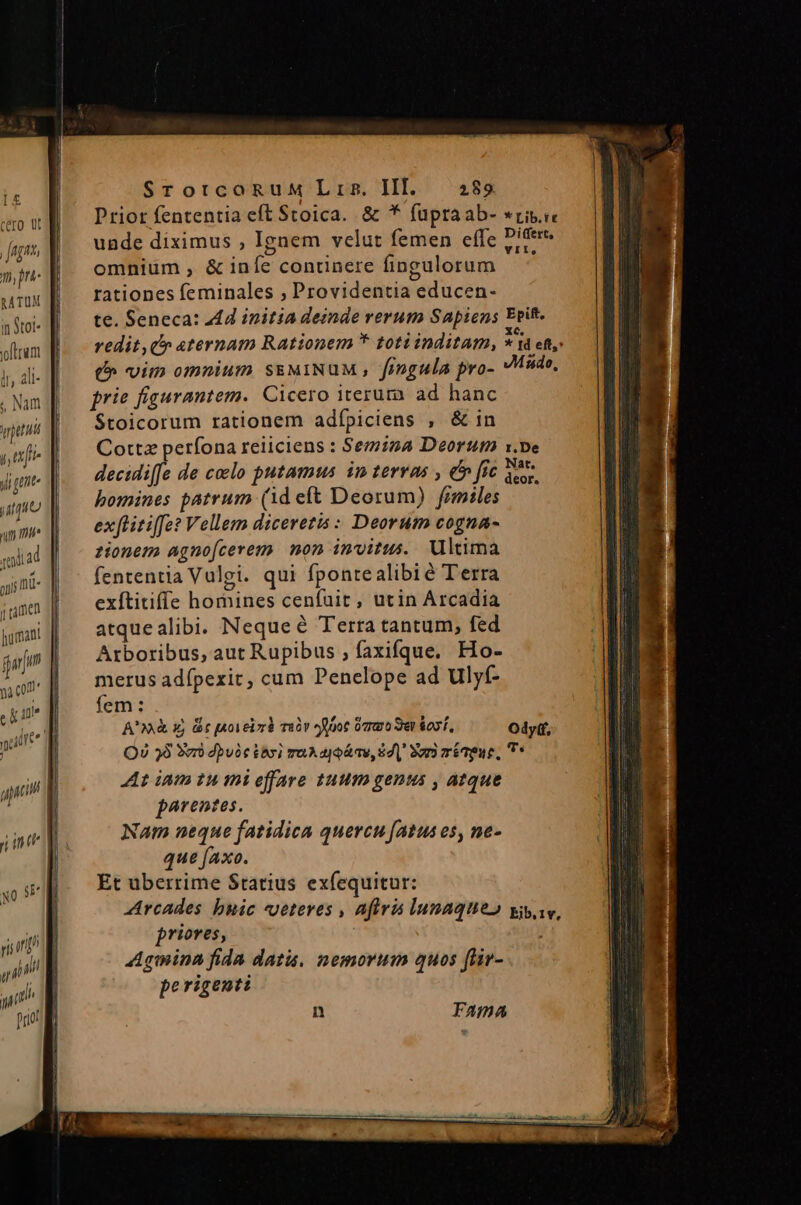 STOICORUM LIB. III. 289
Prior ſententia eſt Stoica. & * ſupra ab-
unde diximus, Ignem velut ſemen eſſe
omnium, & in ſe continere ſingulorum
rationes ſeminales, Providentia educen-
te. Seneca: Ad initia deinde rerum Sapiens
redit, & æternam Rationem * toti inditam,
& vim omnium SEMINUM, ſingula pro-
prie figurantem. Cicero iterum ad hanc
Stoicorum rationem adſpiciens, & in
Cottæ perſona reiiciens: Semina Deorum
decidiſſe de cœlo putamus in terras, & ſic
homines patrum (id eſt Deorum) ſimiles
exſtitiſſe? Vellem diceretis: Deorum cogna-
tionem agnoſcerem non invitus. Ultima
ſententia Vulgi. qui ſponte alibi è Terra
exſtitiſſe homines cenſuit, ut in Arcadia
atque alibi. Neque è Terra tantum, ſed
Arboribus, aut Rupibus, ſaxiſque. Ho-
merus adſpexit, cum Penelope ad Ulyſ-
ſem:
Ἀλλὰ καὶ ὥς μοι εἰπὲ τεὸν γένος ὅπποθεν ἐσσί,
Οὐ γὰρ ἀπὸ δρυός ἐσσι παλαιφάτου, οὐδ᾽ ἀπὸ πέτρης.
At iam tu mi effare tuum genus, atque
parentes.
Nam neque fatidica quercu ſatus es, ne-
que ſaxo.
Et uberrime Statius exſequitur:
Arcades huic veteres, aſtris lunaque
priores,
Agmina fida datis. nemorum quos ſtir-
pe rigenti
n Fama
* Lib. 1.
Differt.
VII.
Epiſt.
XC.
* id eſt,
Mūdo.
1. De
Nat.
deor.
Odyſſ.
T.
Lib. IV.